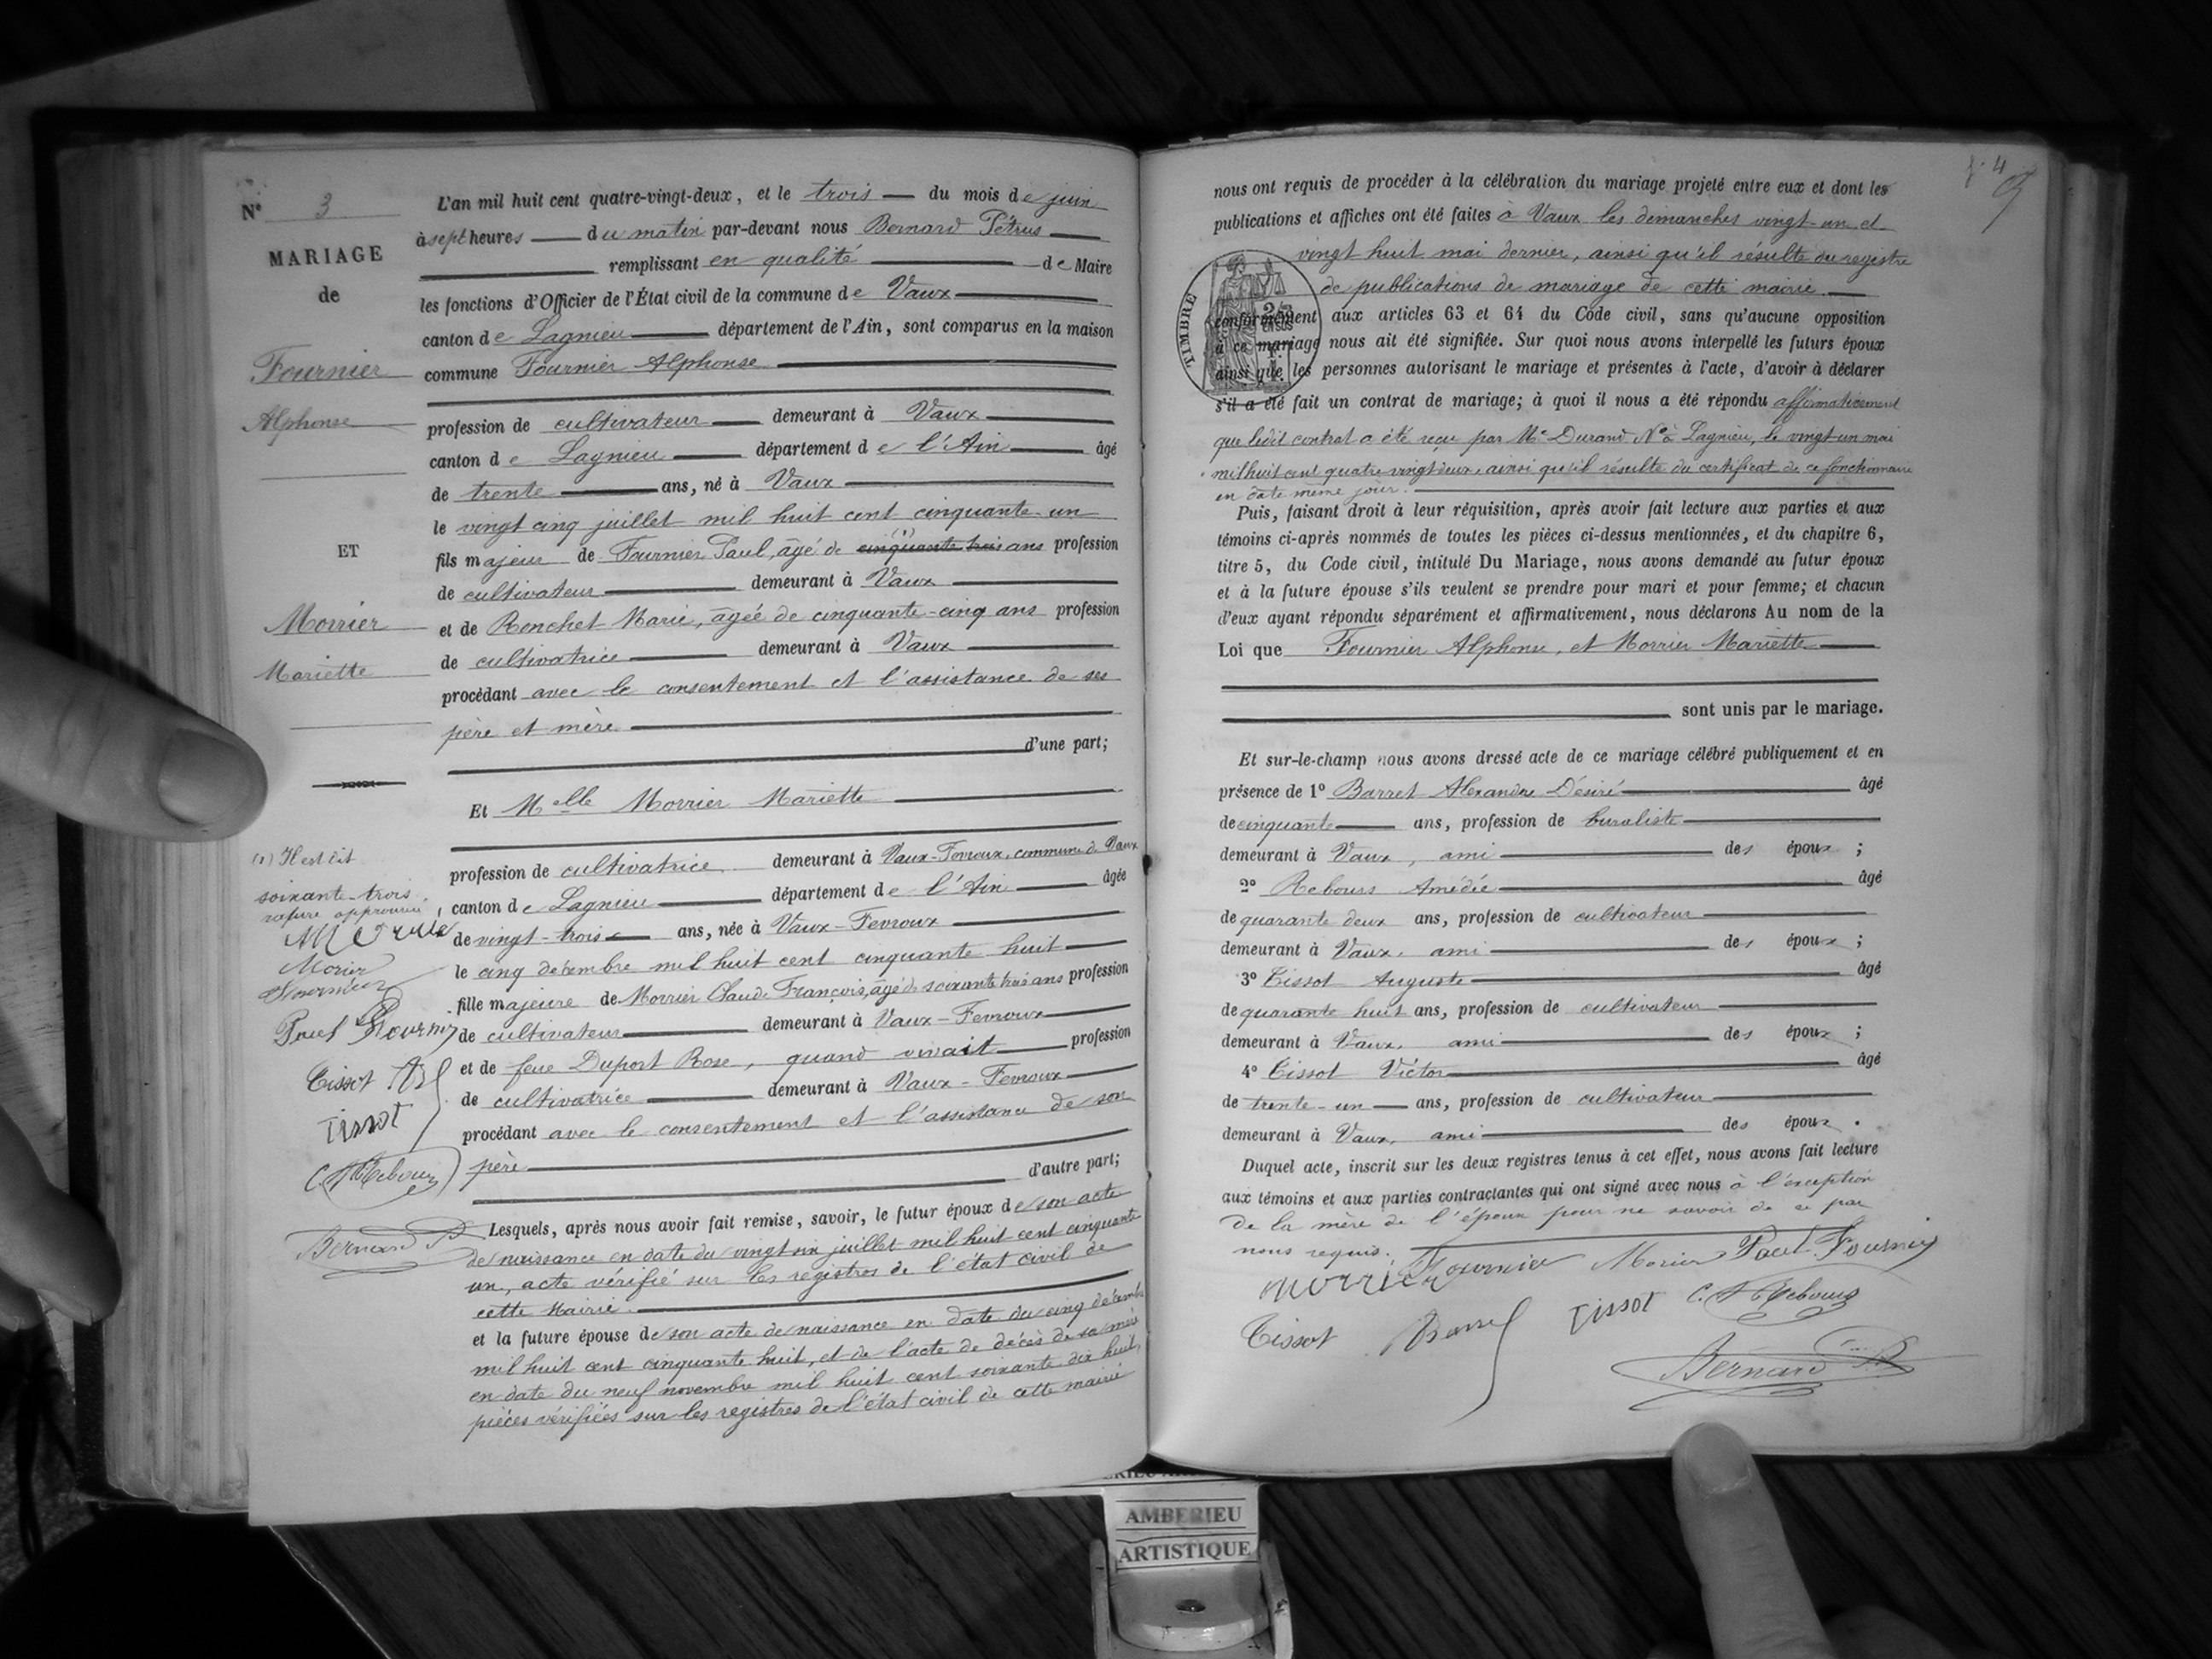 N° 3
MARIAGE
de
Fournier
Alphonse
ET
Morrier
Mariette
(1) Il est dit
soixante-trois
rature approuvée
Morier
Fournier
Paul Fournier
Tissot
Tissot
C. A Rebours
Bernard P
L'an mil huit cent quatre-vingt-deux, et le trois du mois de juin
à sept heures du matin par-devant nous Bernard Pétrus
remplissant en qualité de Maire
les fonctions d'Officier de l'État civil de la commune de Vaux
canton de Lagnieu département de l'Ain, sont comparus en la maison
commune Fournier Alphonse
profession de cultivateur demeurant à Vaux
canton de Lagnieu département de l'Ain âgé
de trente ans, né à Vaux
le vingt cinq juillet mil huit cent cinquante-un
fils majeur de Fournier Paul, âgé de cinquante trois (1) ans profession
de cultivateur demeurant à Vaux
et de Ronchet Marie, âgée de cinquante-cinq ans profession
de cultivatrice demeurant à Vaux
procédant avec le consentement et l'assistance de ses
père et mère
d'une part;
Et Melle Morrier Mariette
profession de cultivatrice demeurant à Vaux-Fevroux, commune de Vaux
canton de Lagnieu département de l'Ain âgée
de vingt-trois ans, née à Vaux-Fevroux
le cinq décembre mil huit cent cinquante huit
fille majeure de Morrier Claude François, âgé de soixante trois ans profession
de cultivateur demeurant à Vaux-Fevroux
et de feue Duport Rose, quand vivait profession
de cultivatrice demeurant à Vaux-Fevroux
procédant avec le consentement et l'assistance de son
père
d'autre part;
Lesquels, après nous avoir fait remise, savoir, le futur époux de son acte
de naissance en date du vingt six juillet mil huit cent cinquante
un, acte vérifié sur les registres de l'état civil de
cette Mairie.
et la future épouse de son acte de naissance en date du cinq décembre
mil huit cent cinquante huit, et de l'acte de décès de sa mère
en date du neuf novembre mil huit cent soixante dix huit,
pièces vérifiées sur les registres de l'état civil de cette mairie
nous ont requis de procéder à la célébration du mariage projeté entre eux et dont les
publications et affiches ont été faites à Vaux les dimanches vingt-un et
vingt huit mai dernier, ainsi qu'il résulte du registre
de publications de mariage de cette mairie
TIMBRE
conformément aux articles 63 et 64 du Code civil, sans qu'aucune opposition
à ce mariage nous ait été signifiée. Sur quoi nous avons interpellé les futurs époux
ainsi que les personnes autorisant le mariage et présentes à l'acte, d'avoir à déclarer
s'il a été fait un contrat de mariage; à quoi il nous a été répondu affirmativement
que ledit contrat a été reçu par Me Durand Nre à Lagnieu, le vingt-un mai
mil huit cent quatre-vingt deux, ainsi qu'il résulte du certificat de ce fonctionnaire
en date même jour.
Puis, faisant droit à leur réquisition, après avoir fait lecture aux parties et aux
témoins ci-après nommés de toutes les pièces ci-dessus mentionnées, et du chapitre 6,
titre 5, du Code civil, intitulé Du Mariage, nous avons demandé au futur époux
et à la future épouse s'ils veulent se prendre pour mari et pour femme; et chacun
d'eux ayant répondu séparément et affirmativement, nous déclarons Au nom de la
Loi que Fournier Alphonse, et Morrier Mariette
sont unis par le mariage.
Et sur-le-champ nous avons dressé acte de ce mariage célébré publiquement et en
présence de 1° Barret Alexandre Désiré âgé
de cinquante ans, profession de buraliste
demeurant à Vaux, ami des époux ;
2° Rebours Amédée âgé
de quarante deux ans, profession de cultivateur
demeurant à Vaux, ami des époux ;
3° Tissot Auguste âgé
de quarante huit ans, profession de cultivateur
demeurant à Vaux, ami des époux ;
4° Tissot Victor âgé
de trente-un ans, profession de cultivateur
demeurant à Vaux, ami des époux .
Duquel acte, inscrit sur les deux registres tenus à cet effet, nous avons fait lecture
aux témoins et aux parties contractantes qui ont signé avec nous à l'exception
de la mère de l'époux pour ne savoir de ce par
nous requis.
Fournier Morier Paul Fournier
Morrier
Tissot Barret Tissot C. A Rebours
Bernard P
AMBERIEU
ARTISTIQUE